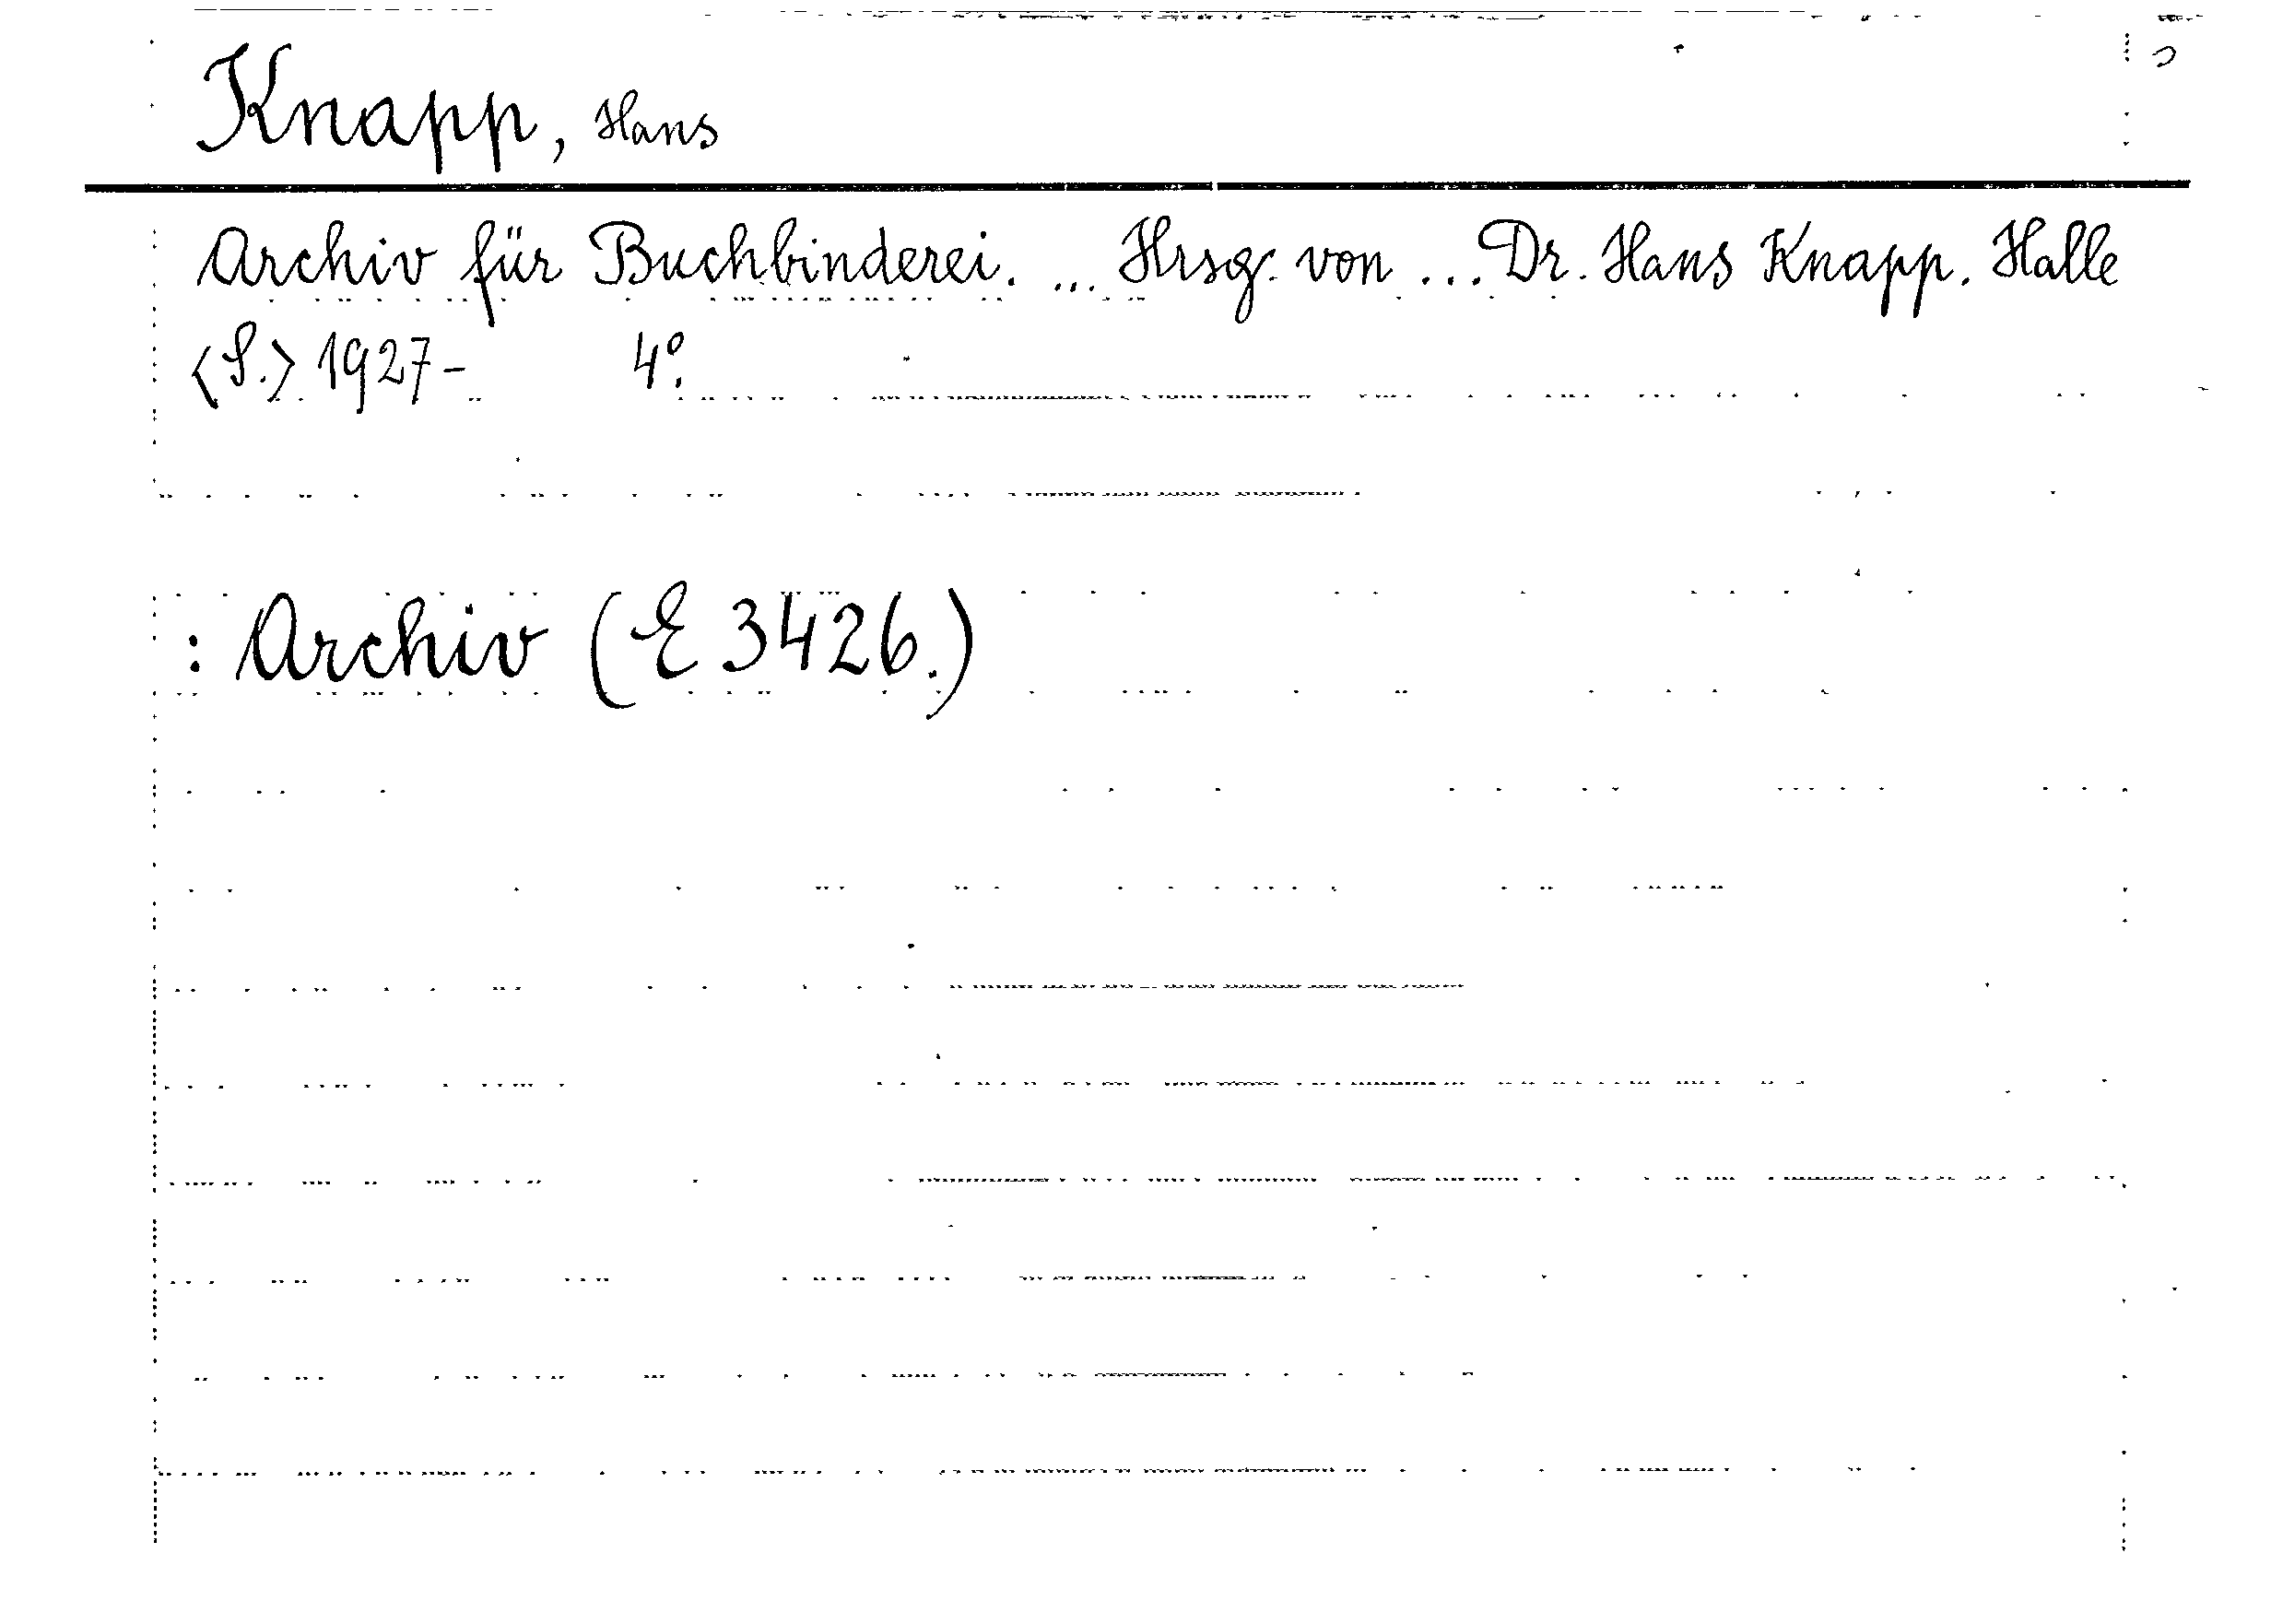 Knapp, Hans
Archiv für Buchbinderei. ... Hrsg. von ... Dr. Hans Knapp. Halle
<S.> 1927- 4°.
: Archiv (E 3426.)